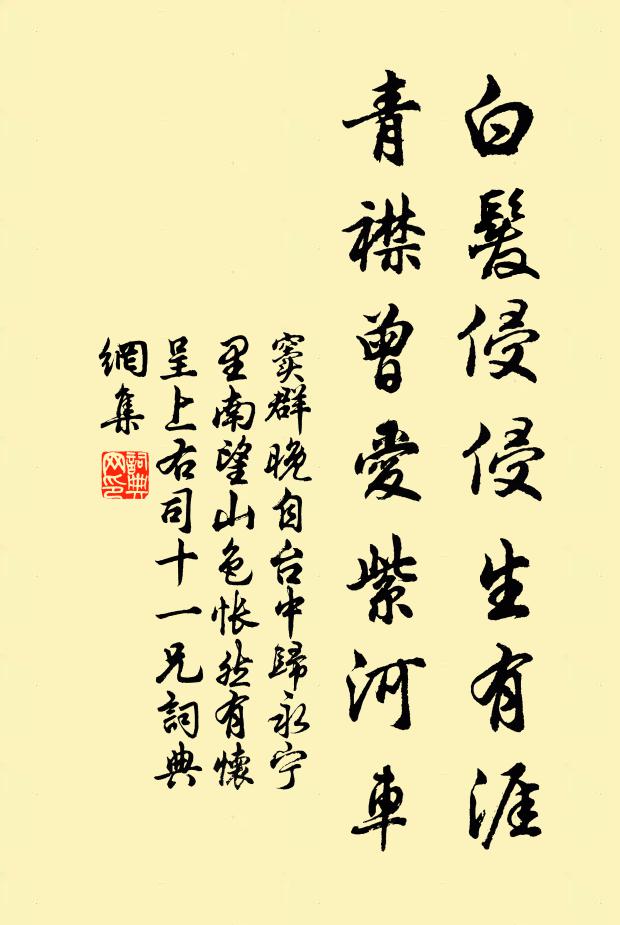 白髮侵侵生有涯
青襟曾愛紫河車
竇群晚自台中歸永宁
里南望山色悵然有懷
呈上右司十一兄詞典
網集
詞典
网印